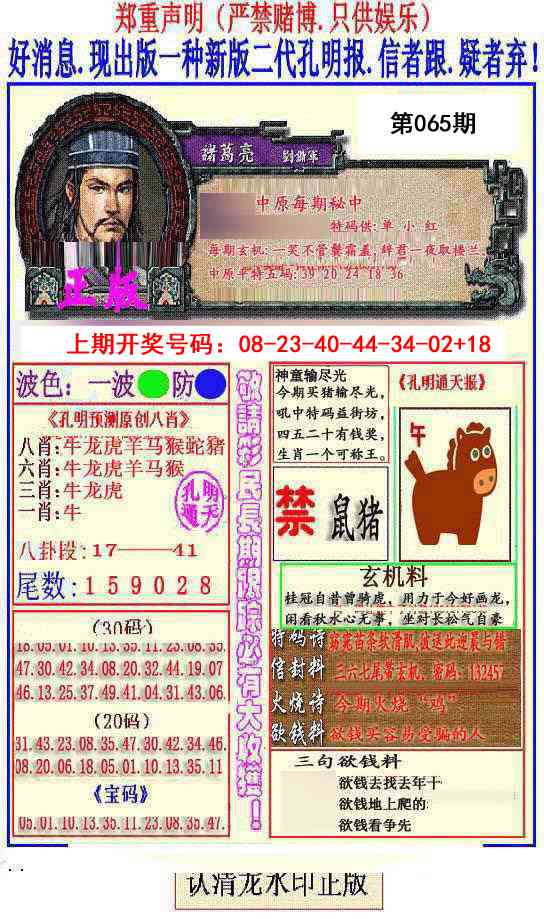 郑重声明（严禁赌博.只供娱乐）
好消息.现出版一种新版二代孔明报.信者跟.疑者弃！
第065期
諸葛亮 劉諧軍
中原每期秘中
特码供:单 小 红
每期玄机:一笑不管鬢霜盖,辞君一夜取楼兰.
中原平特五码:39 20 24 18 36
正版
上期开奖号码：08-23-40-44-34-02+18
波色：一波 防
《孔明预测原创八肖》
八肖:牛龙虎羊马猴蛇豬
六肖:牛龙虎羊马猴
三肖:牛龙虎
一肖:牛
孔明
通天
八卦段:17———41
尾数:159028
敬請彩民長期跟踪必有大收獲！
神童输尽光
今期买猪输尽光,
吼中特码益街坊,
四五二十有钱奖,
生肖一个可称王。
《孔明通天报》
午
禁 鼠猪
玄机料
桂冠自昔曾骑虎，用力于今好画龙，
闲看秋水心无事，坐对长松气自豪
(30码)
18.05.01.10.13.35.11.23.08.35.
47.30.42.34.08.20.32.44.19.07
46.13.25.37.49.41.04.31.43.06.
(20码)
31.43.23.08.35.47.30.42.34.46.
08.20.06.18.05.01.10.13.35.11
《宝码》
05.01.10.13.35.11.23.08.35.47.
特码诗
信封料 三六七尾带玄机，密码：132457
火烧诗 今期火烧“鸡”
欲钱料 欲钱买容易受骗的人
三句欲钱料
欲钱去找去年十
欲钱地上爬的
欲钱看争先
认清龙水印正版